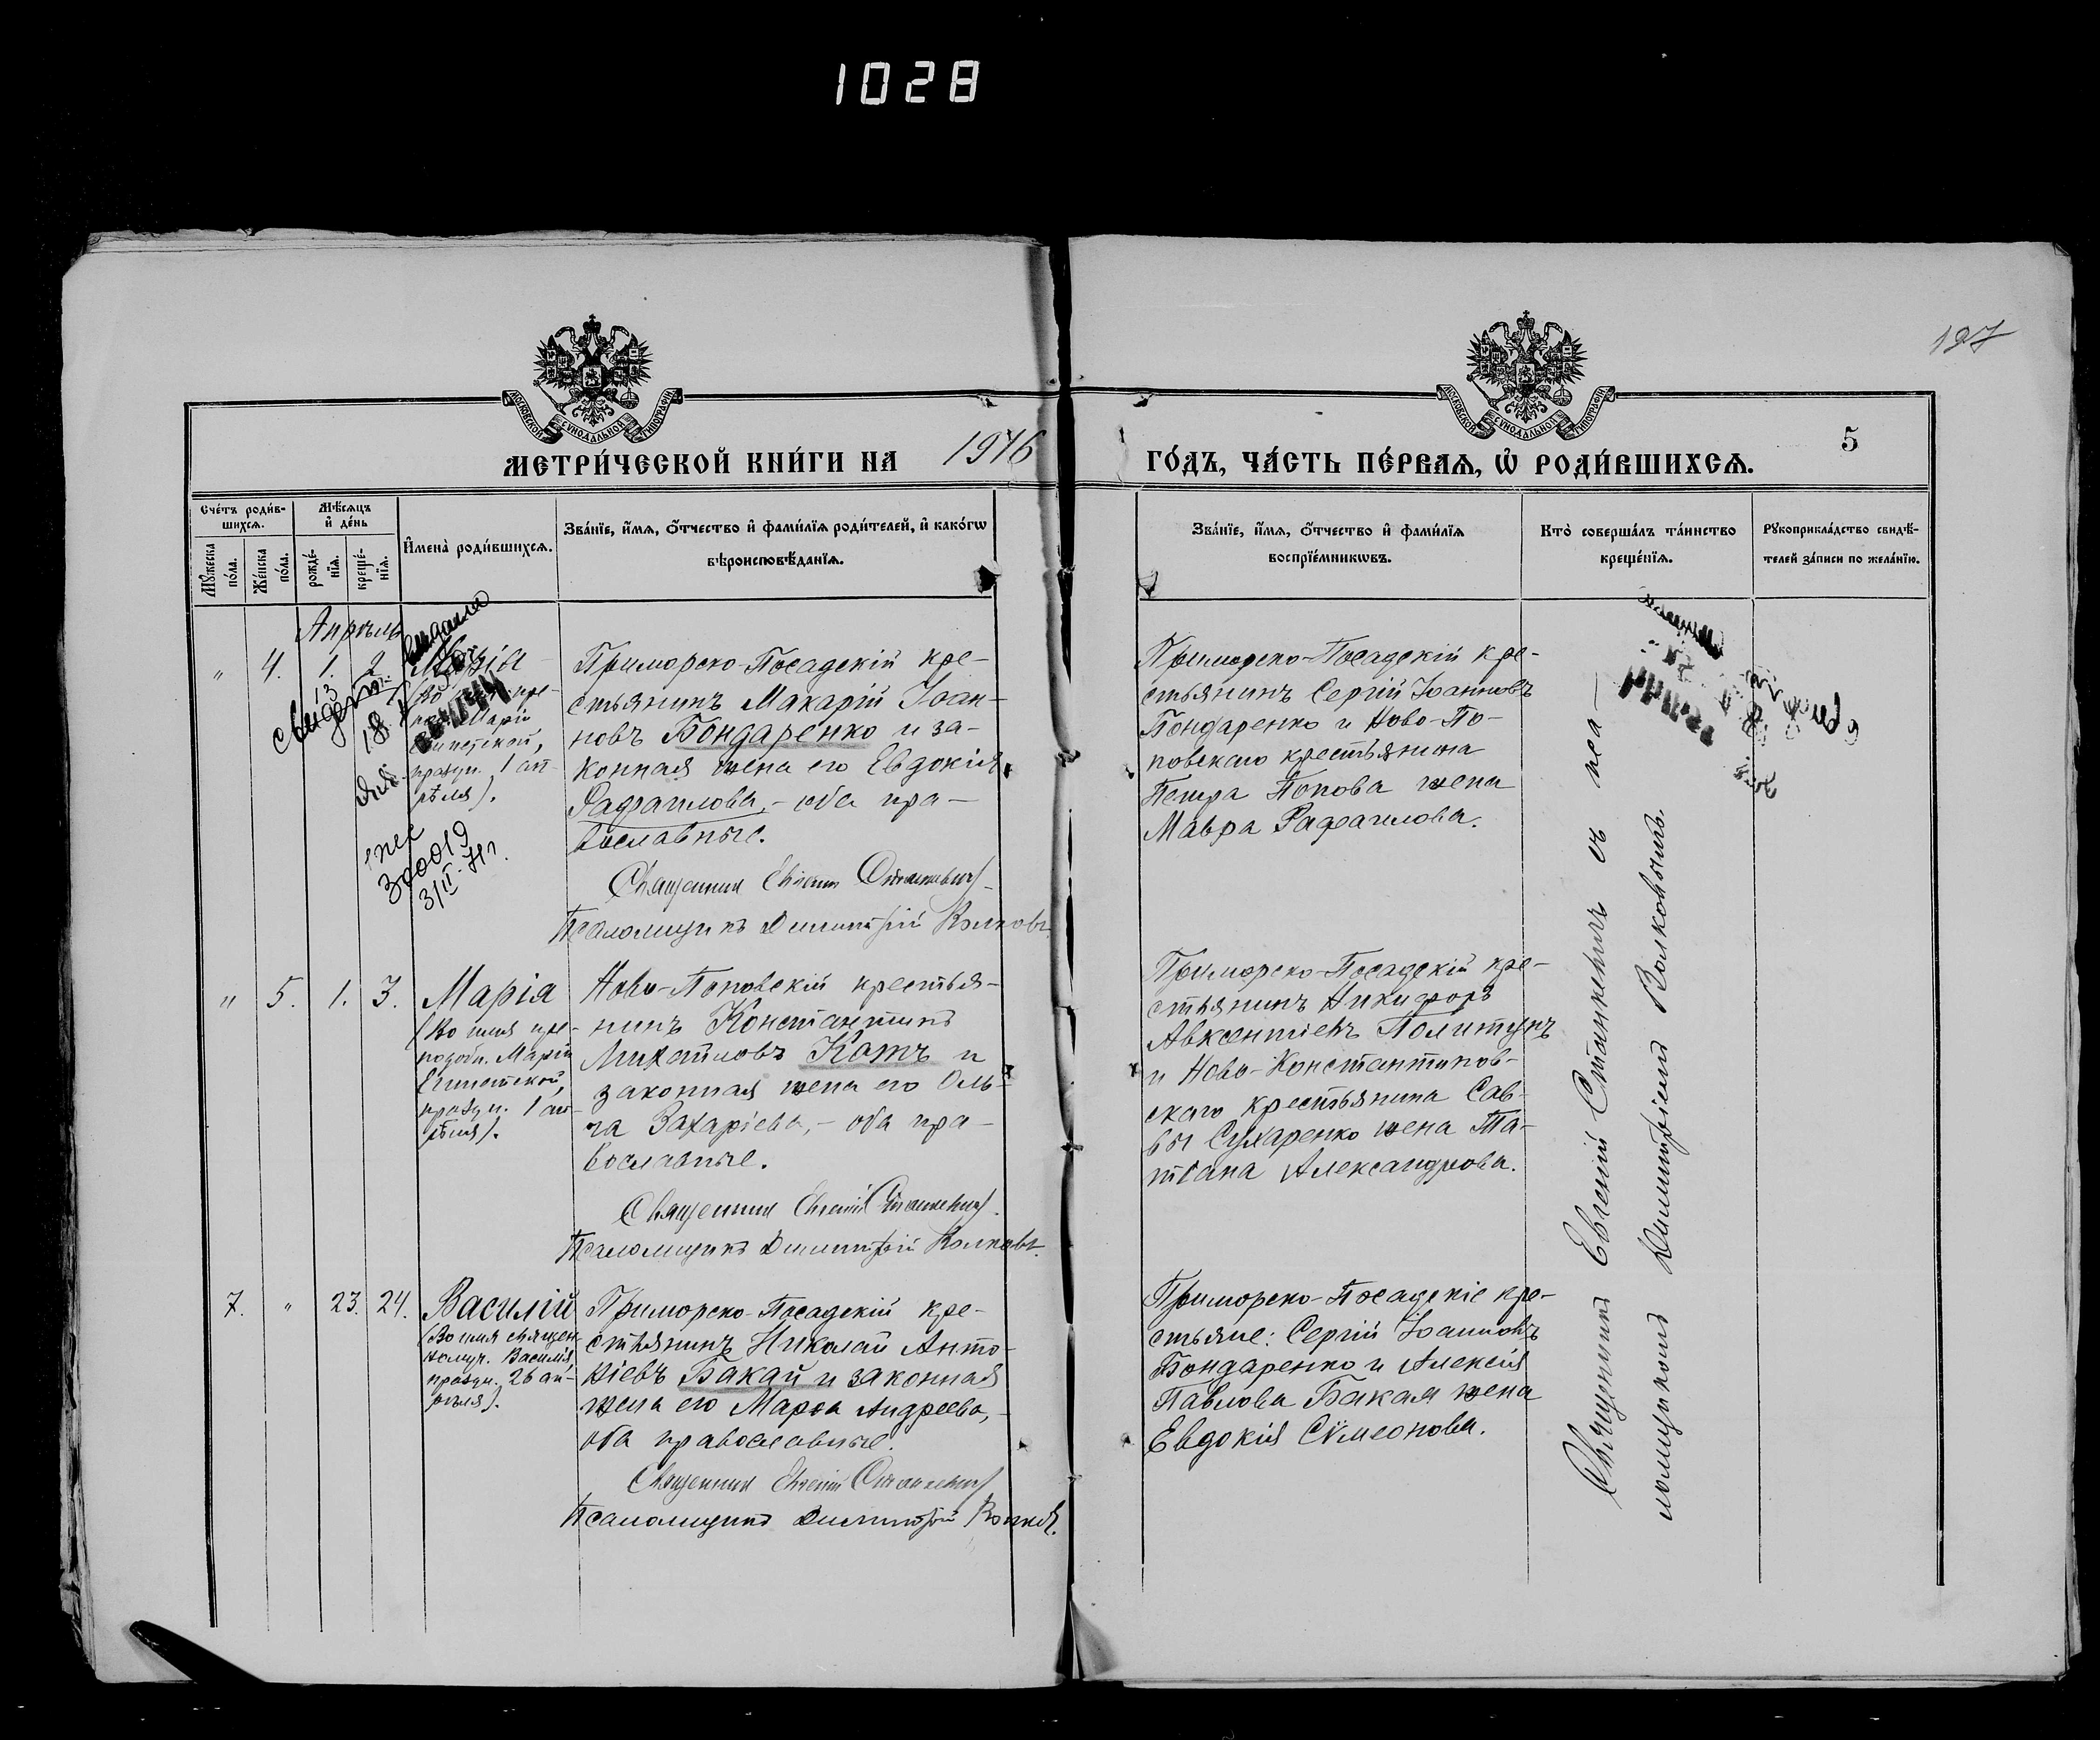 1028
197
МОСКОВСКОЙ СѴНОДАЛЬНОЙ ТИПОГРАФІИ
МОСКОВСКОЙ СѴНОДАЛЬНОЙ ТИПОГРАФІИ
МЕТРИ́ЧЕСКОЙ КНИ́ГИ НА 1916
ГО́ДЪ, ЧА́СТЬ ПЕ́РВАЯ, Ѡ РОДИ́ВШИХСЯ.
5
Сче́тъ роди́в-
шихся.
Мѣ́сяцъ
и҆ де́нь
Мꙋ́жеска
по́ла.
Же́нска
по́ла.
рожде́-
нїя.
креще́-
нїя.
И҆мена̀ роди́вшихся.
Зва́нїе, и҆́мя, ѻ҆́тчество и҆ фами́лїя роди́телей, и҆ како́гѡ
вѣроисповѣ́данїя.
Зва́нїе, и҆́мя, ѻ҆́тчество и҆ фами́лїя
воспрїе́мникѡвъ.
Кто̀ соверша́лъ та́инство
креще́нїя.
Рꙋкоприкла́дство свидѣ́-
телей за́писи по жела́нїю.
Апрѣль
" 4. 1. 2
Марія
Маріи
Египетской,
праздн. 1 ап-
рѣля).
Приморско-Посадскій кре-
стьянинъ Макарій Іоан-
новъ Бондаренко и за-
конная жена его Евдокія
Рафаилова, – оба пра-
вославные.
Священник Евгений Станкевич
Псаломщикъ Димитрій Волковъ.
Приморско-Посадскій кре-
стьянинъ Сергій Іоанновъ
Бондаренко и Ново-По-
повскаго крестьянина
Петра Попова жена
Мавра Рафаилова.
300019
3/II-71г.
" 5. 1. 3.
Марія
(Во имя пре-
подобн. Маріи
Египетской,
праздн. 1 ап-
рѣля).
Ново-Поповскій крестья-
нинъ Константинъ
Михайловъ Котъ и
законная жена его Оль-
га Захаріева, – оба пра-
вославные.
Священник Евгений Станкевич.
Псаломщикъ Димитрій Волковъ.
Приморско-Посадскій кре-
стьянинъ Никифоръ
Авксентіевъ Политунъ
и Ново-Константинов-
скаго крестьянина Сав-
вы Сухаренко жена Та-
тіана Александрова.
7. " 23. 24.
Василій
(Во имя священ-
номуч. Василія,
праздн. 26 ап-
рѣля).
Приморско-Посадскій кре-
стьянинъ Николай Анто-
ніевъ Бакай и законная
жена его Марѳа Андреева, –
оба православные.
Священник Евгений Станкевич
Псаломщикъ Димитрій Волковъ.
Приморско-Посадскіе кре-
стьяне: Сергій Іоанновъ
Бондаренко и Алексія
Павлова Бакая жена
Евдокія Сѵмеонова.
Священникъ Евгеній Станкевичъ съ пса-
ломщикомъ Димитріемъ Волковымъ.